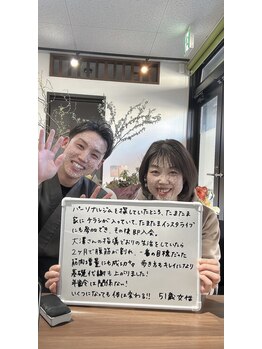 パーソナルジムを探していたところ、たまたま
家にチラシが入っていて、たまたまインスタライブ
にも参加でき、その後即入会。
さんの指導どおりの生活をしていたら
2ヶ月で腹筋が割れ、一番の目標だった
筋肉増量にも成功。歩き方もキレイになり
基礎代謝も上がりました!
年齢は関係ない!
いくつになっても体は変わる!! 51歳女性